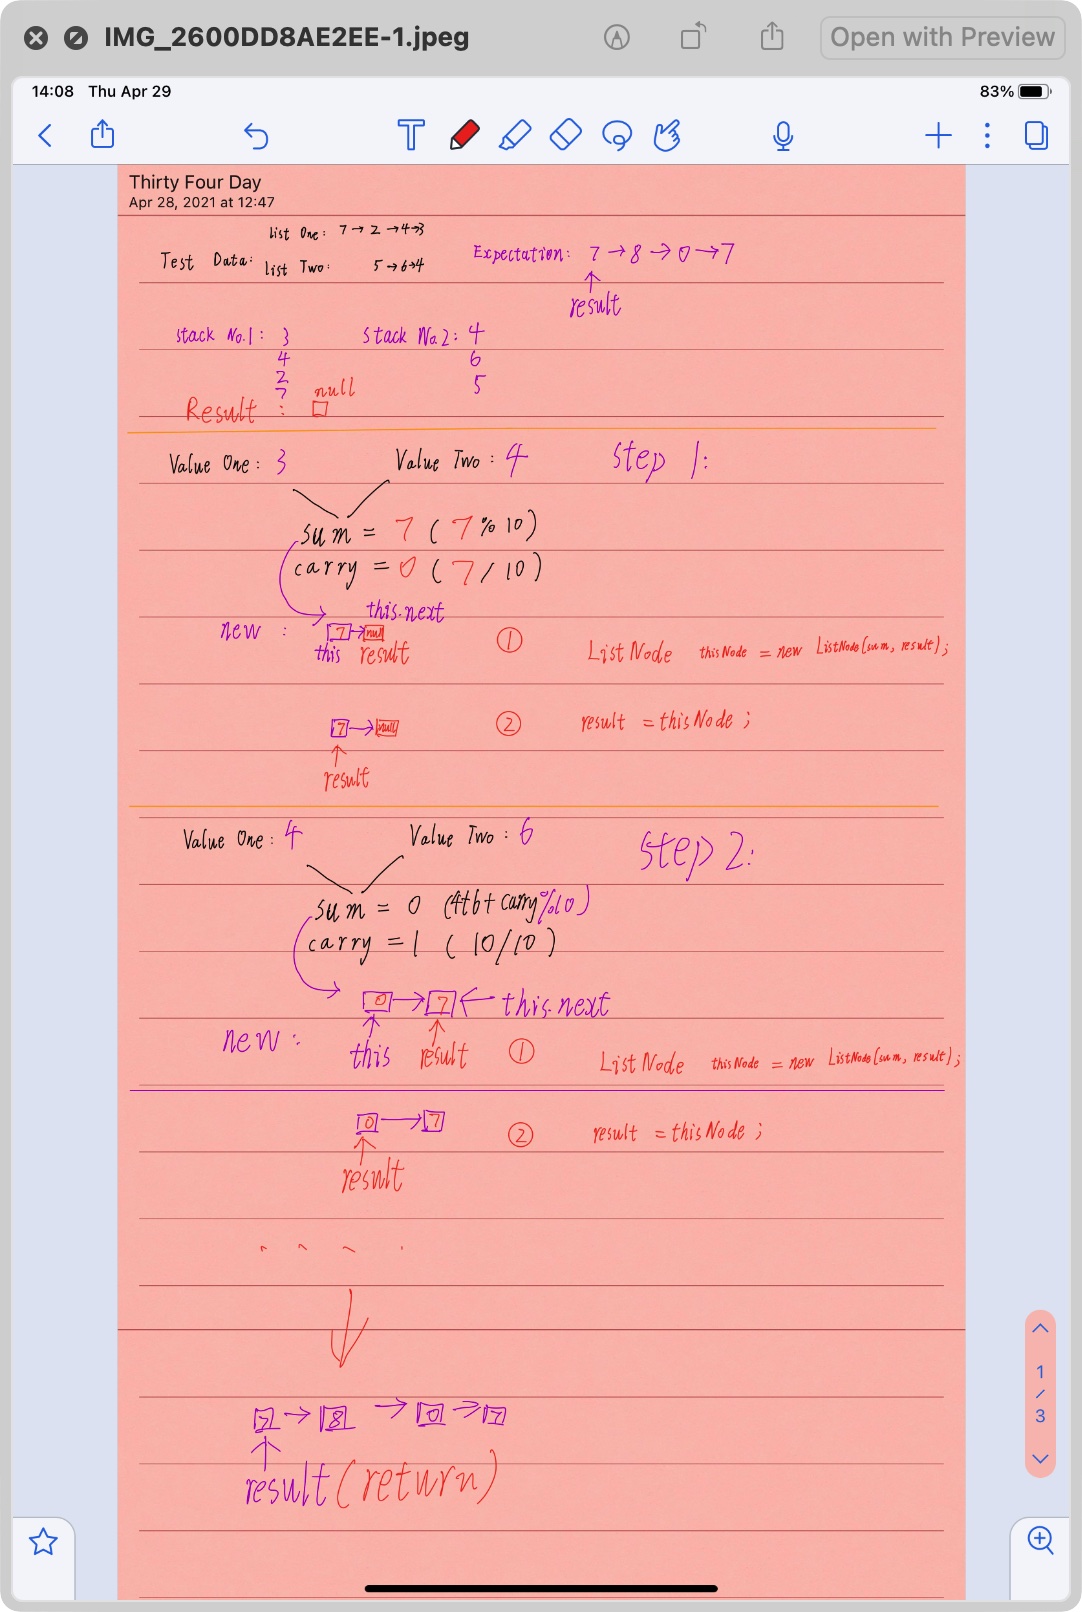 IMG_2600DD8AE2EE-1.jpeg
Open with Preview
14:08 Thu Apr 29
83%
Thirty Four Day
Apr 28, 2021 at 12:47
List One: 7→2→4→3
Test Data:
list Two: 5→6→4
Expectation: 7→8→0→7
↑
result
Stack No.1: 3
4
2
7
Stack No.2: 4
6
5
null
Result :
Value One: 3 Value Two: 4 Step 1:
sum = 7 (7%10)
carry = 0 (7/10)
this.next
new : 7→null
this result
① ListNode thisNode = new ListNode(sum, result);
7→null ② result = thisNode;
↑
result
Value One: 4 Value Two: 6 Step 2:
sum = 0 (4+6+carry%10)
carry = 1 (10/10)
0→7← this.next
new:
↑ ↑
this result ① ListNode thisNode = new ListNode(sum, result);
0→7 ② result = thisNode;
↑
result
. . . .
↓
7→8→0→7
↑
result (return)
1
/
3